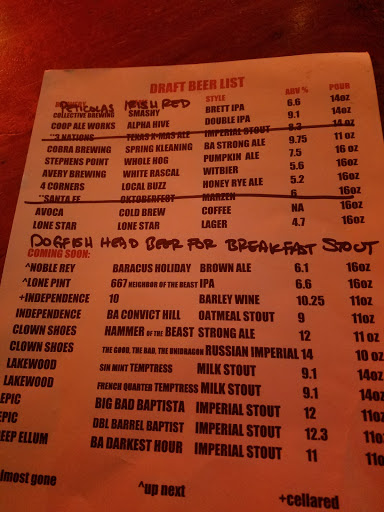 DRAFT BEER LIST
BREWERY STYLE ABV % POUR
PETICOLAS IRISH RED
COLLECTIVE BREWING SMASHY BRETT IPA 6.6 14oz
COOP ALE WORKS ALPHA HIVE DOUBLE IPA 9.1 14oz
~3 NATIONS TEXAS X-MAS ALE IMPERIAL STOUT 8.3 14 oz
COBRA BREWING SPRING KLEANING BA STRONG ALE 9.75 11 oz
STEPHENS POINT WHOLE HOG PUMPKIN ALE 7.5 16 oz
AVERY BREWING WHITE RASCAL WITBIER 5.6 16oz
4 CORNERS LOCAL BUZZ HONEY RYE ALE 5.2 16oz
~SANTA FE OKTOBERFEST MARZEN 6 16oz
AVOCA COLD BREW COFFEE NA 16oz
LONE STAR LONE STAR LAGER 4.7 16oz
DOGFISH HEAD BEER FOR BREAKFAST STOUT
COMING SOON:
^NOBLE REY BARACUS HOLIDAY BROWN ALE 6.1 16oz
^LONE PINT 667 NEIGHBOR OF THE BEAST IPA 6.6 16oz
+INDEPENDENCE 10 BARLEY WINE 10.25 11oz
INDEPENDENCE BA CONVICT HILL OATMEAL STOUT 9 11oz
CLOWN SHOES HAMMER OF THE BEAST STRONG ALE 12 11 oz
CLOWN SHOES THE GOOD, THE BAD, THE UNIDRAGON RUSSIAN IMPERIAL 14 10 oz
LAKEWOOD SIN MINT TEMPTRESS MILK STOUT 9.1 14oz
LAKEWOOD FRENCH QUARTER TEMPTRESS MILK STOUT 9.1 14oz
EPIC BIG BAD BAPTISTA IMPERIAL STOUT 12 11oz
EPIC DBL BARREL BAPTIST IMPERIAL STOUT 12.3 11o
EEP ELLUM BA DARKEST HOUR IMPERIAL STOUT 11 11o
lmost gone ^up next +cellared